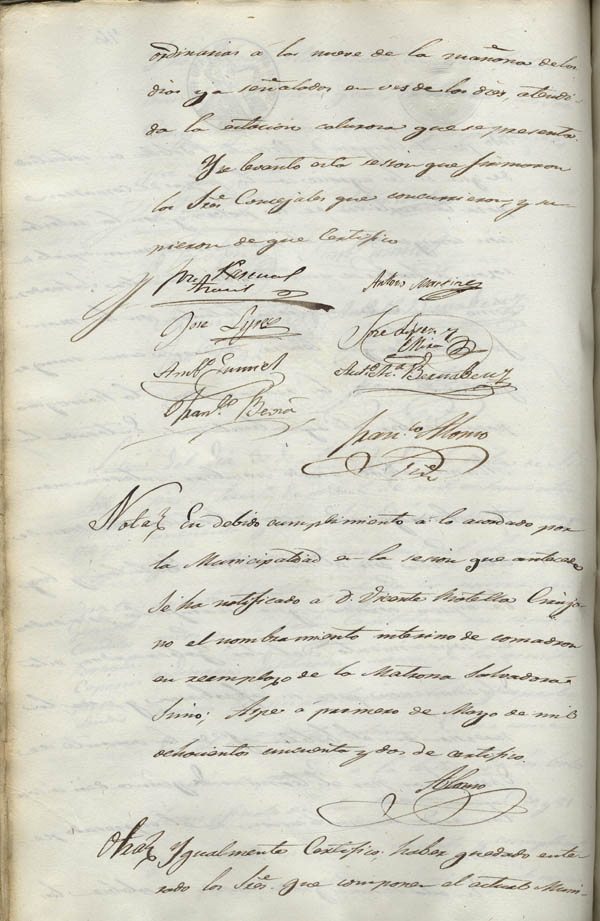 ordinarias a las nueve de la mañana de los
dias ya señalados en ves de las dies, atendi-
da la estacion calurosa que se presenta.
Y se levanto esta sesion que firmaron
los Sres. Concejales que concurrieron y su-
pieron de que Certifico
Jose Pascual
Antonio Martinez
Jose
Jose
Mira
Anto. Ma. Bernabeu
Franco.
Franco. Alonso
Nota En debido cumplimiento a lo acordado por
la Municipalidad en la sesion que antecede
se ha notificado a D. Vicente Botella Ciruja-
no el nombramiento interino de comadron
en reemplazo de la Matrona Salvadora
Aspe a primero de Mayo de mil
ochocientos cincuenta y dos de certifico.
Alonso
Otra Ygualmente Certifico haber quedado ente-
rado los Sres. que componen el actual Muni-